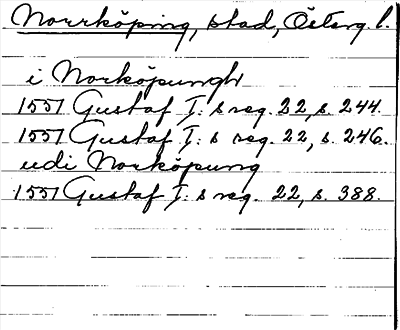 Norrköping, stad, Österg l.
i Norköpungh
1551 Gustaf I: s reg. 22, s. 244.
1551 Gustaf I: s reg. 22, s. 246.
udi Norköpung
1551 Gustaf I: s reg. 22, s. 388.